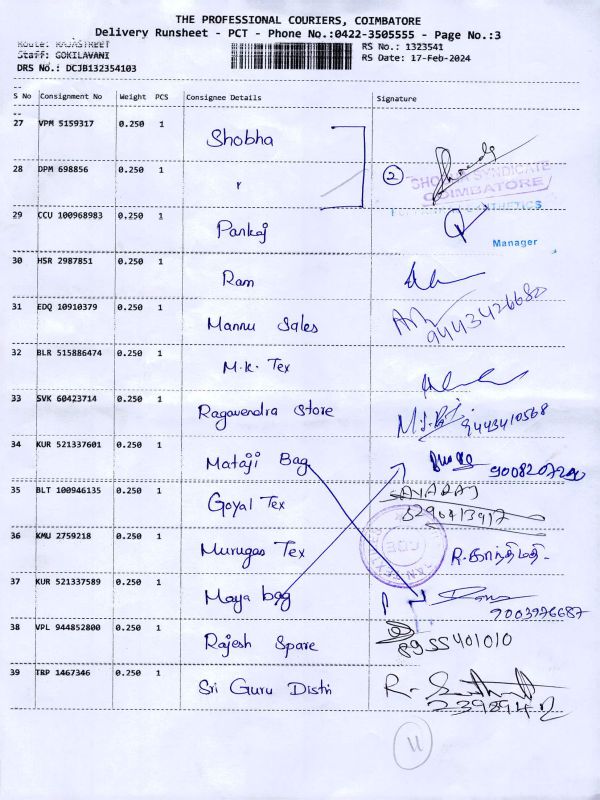 THE PROFESSIONAL COURIERS, COIMBATORE
Delivery Runsheet - PCT - Phone No.:0422-3505555 - Page No.:3
Route: RAJASTREET
Staff: GOKILAVANI
DRS No.: DCJB132354103
RS No.: 1323541
RS Date: 17-Feb-2024
S No Consignment No Weight PCS Consignee Details Signature
27 VPM 5159317 0.250 1 Shobha
28 DPM 698856 0.250 1 " 2
SHOBA SYNDICATE
COIMBATORE
29 CCU 100968983 0.250 1 Pankaj
Manager
30 HSR 2987851 0.250 1 Ram
31 EDQ 10910379 0.250 1 Mannu Sales 9443426680
32 BLR 515886474 0.250 1 M.K. Tex
33 SVK 60423714 0.250 1 Ragavendra Store 9443410568
34 KUR 521337601 0.250 1 Mataji Bag 9008207290
35 BLT 100946135 0.250 1 Goyal Tex
36 KMU 2759218 0.250 1 Murugas Tex R.காந்திமதி-
37 KUR 521337589 0.250 1 Maya bag 9003976687
38 VPL 944852800 0.250 1 Rajesh Spare 8955401010
39 TRP 1467346 0.250 1 Sri Guru Distri
11